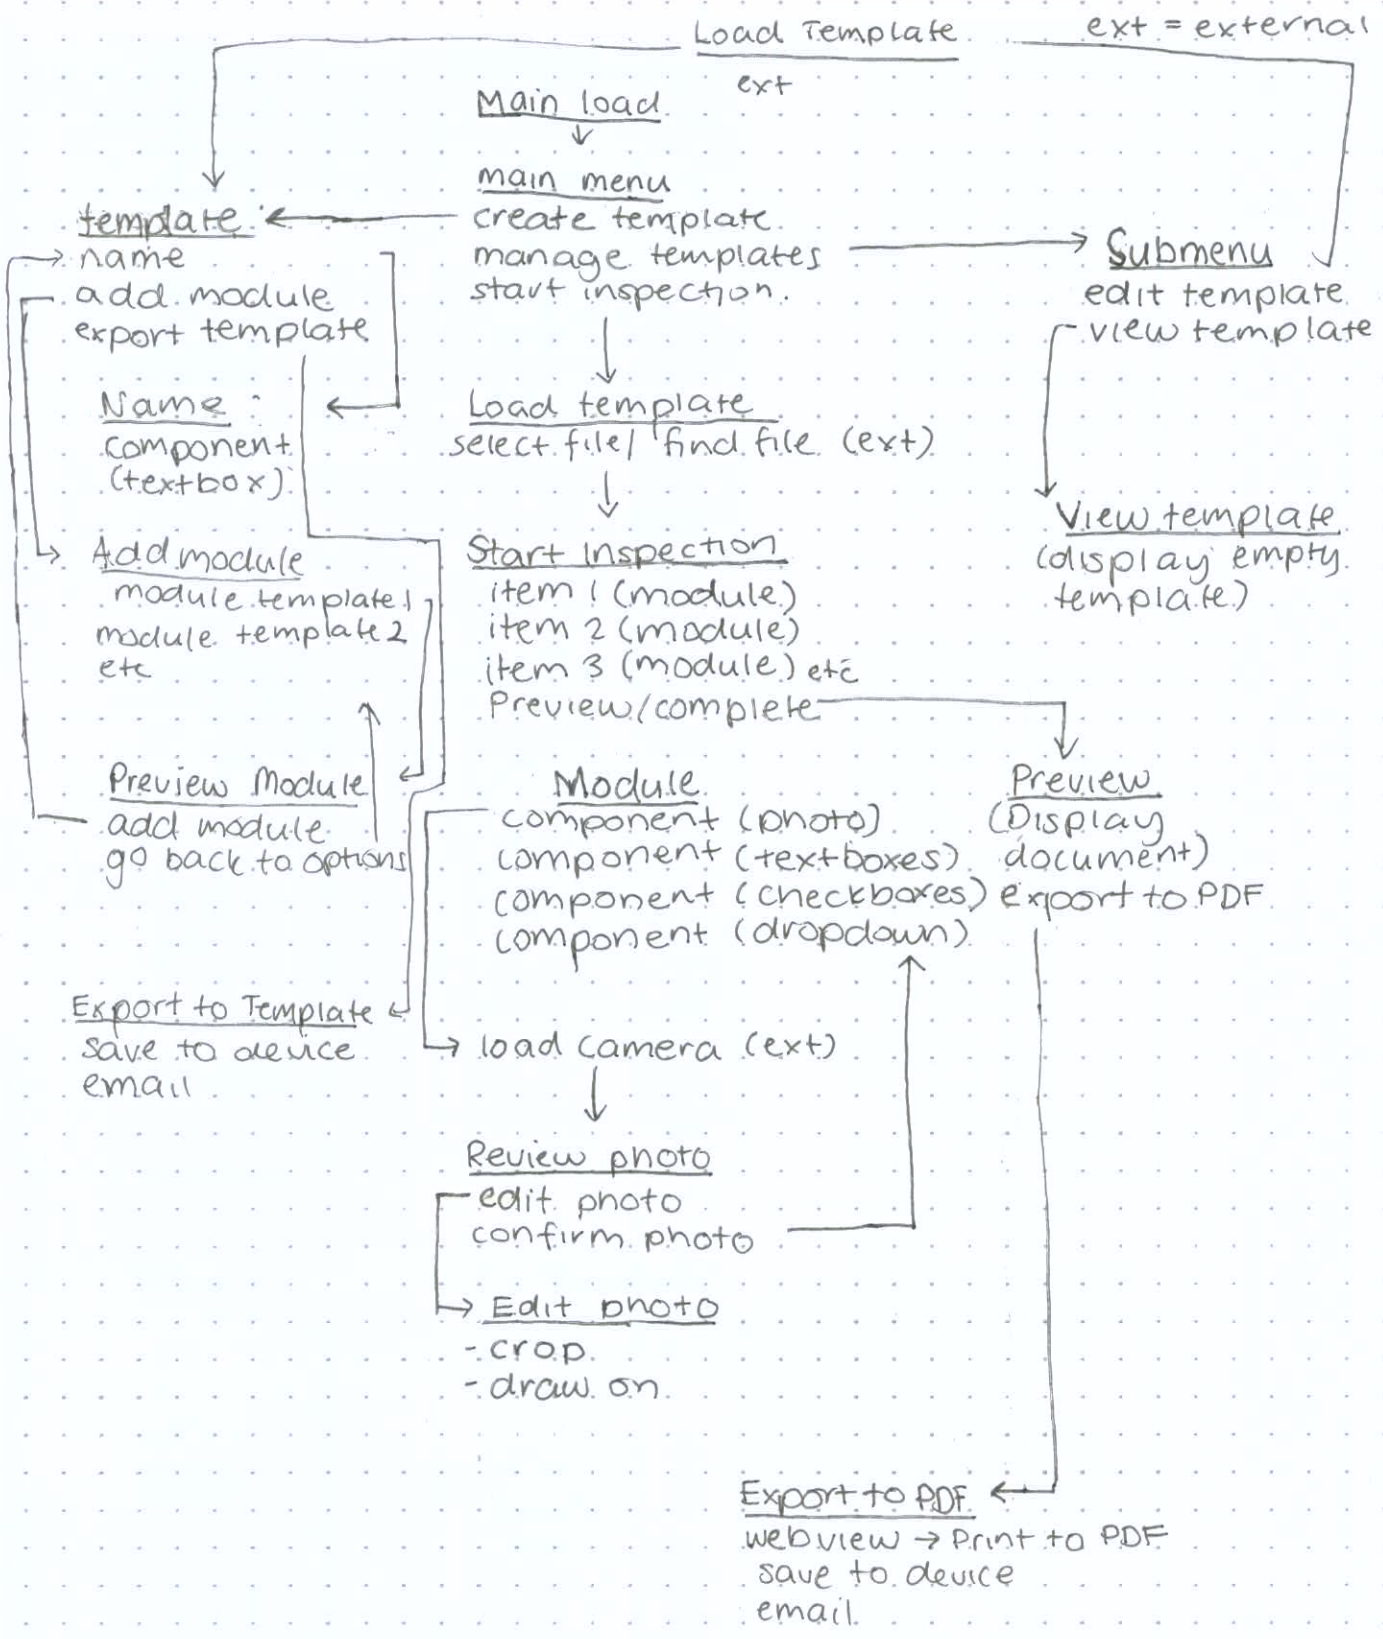 Load Template
ext = external
ext
Main load
main menu
create template
manage templates
start inspection.
template
name
add module
export template
Submenu
edit template
view template
Name
component
(textbox)
Load template
select file/ find file (ext)
View template
(display empty
template)
Add module
module template 1
module template 2
etc
Start Inspection
item 1 (module)
item 2 (module)
item 3 (module) etc
Preview/complete
Preview Module
add module
go back to options
Module
component (photo)
component (textboxes)
component (checkboxes)
component (dropdown)
Preview
(Display
document)
export to PDF
Export to Template
save to device
email
load camera (ext)
Review photo
edit photo
confirm photo
Edit photo
- crop
- draw on
Export to PDF
webview → Print to PDF
save to device
email